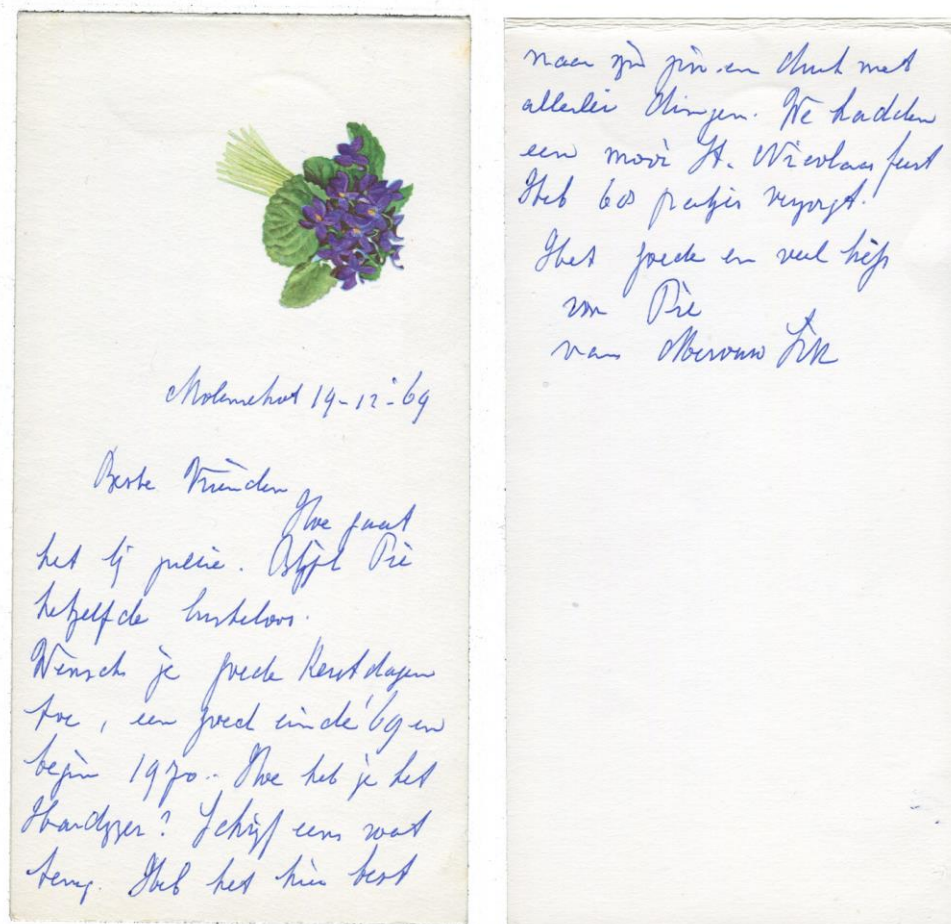 Molenschot 19-12-'69
Beste Vrienden
Hoe gaat
het bij jullie. Blijft Pie
hetzelfde lusteloos.
Wensch je goede Kerstdagen
toe, een goed einde '69 en
begin 1970.. Hoe heb je het
Schrijf eens wat
terug. Heb het hier best
naar mijn zin en druk met
allerlei dingen. We hadden
een mooi St. Nicolaas feest
Heb 60 pakjes verzorgt.
Het goede en veel liefs
van Pie
van